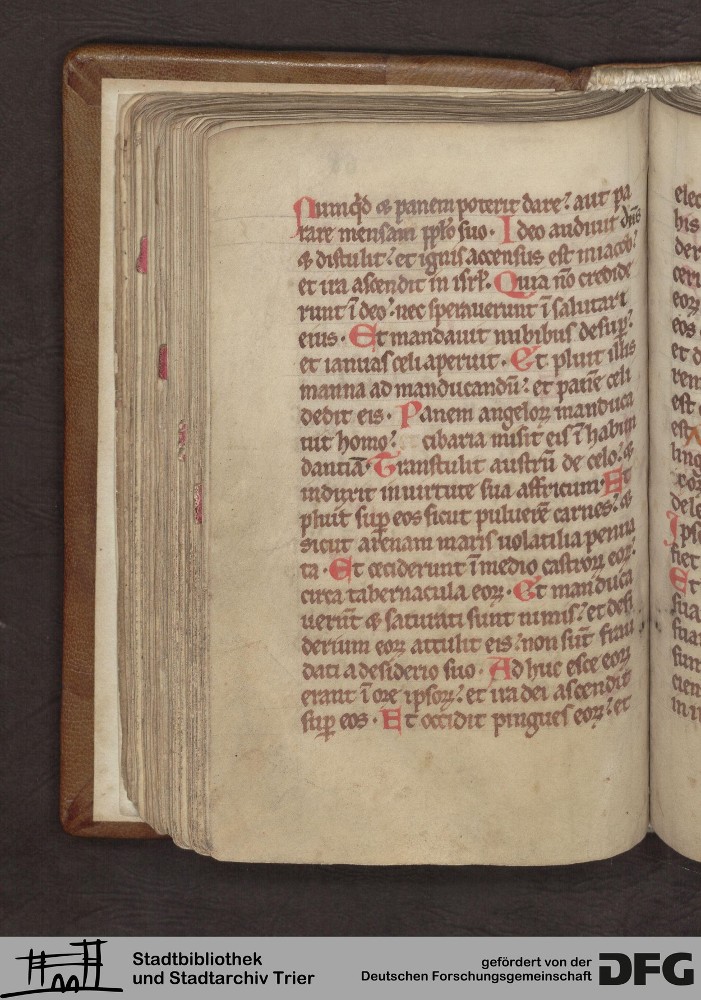 Numqͥd & panem poterit dare? aut pa
rare mensam pplo suo. Ideo audiuit dn̄s
& distulit? et ignis accensus est in iacob?
et ira ascendit in isrl. Quia nō credide
runt ī deo? nec sperauerunt ī salutari
eius. Et mandauit nubibus desuꝑ?
et ianuas celi aperuit. Et pluit illis
manna ad manducandū? et panē celi
dedit eis. Panem angeloꝝ manduca
uit homo? cibaria misit eis ī habun
dantiā. Transtulit austrū de celo? &
induxit in uirtute sua affricum. Et
pluit suꝑ eos sicut puluerē carnes? &
sicut arenam maris uolatilia penna
ta. Et ceciderunt ī medio castroꝝ eoꝝ?
circa tabernacula eoꝝ. Et manduca
uerūt & saturati sunt nimis? et desi
derium eoꝝ attulit eis? non sūt frau
dati a desiderio suo. Adhuc esce eoꝝ
erant ī ore ipsoꝝ? et ira dei ascendit
suꝑ eos. Et occidit pingues eoꝝ? et
elec
his
der
ceri
eoꝝ
eos
et d
rem
est
est
ling
dele
Ipse
fiet
Et
sua
sūn
cien
in ı
Stadtbibliothek
und Stadtarchiv Trier
gefördert von der
Deutschen Forschungsgemeinschaft
DFG